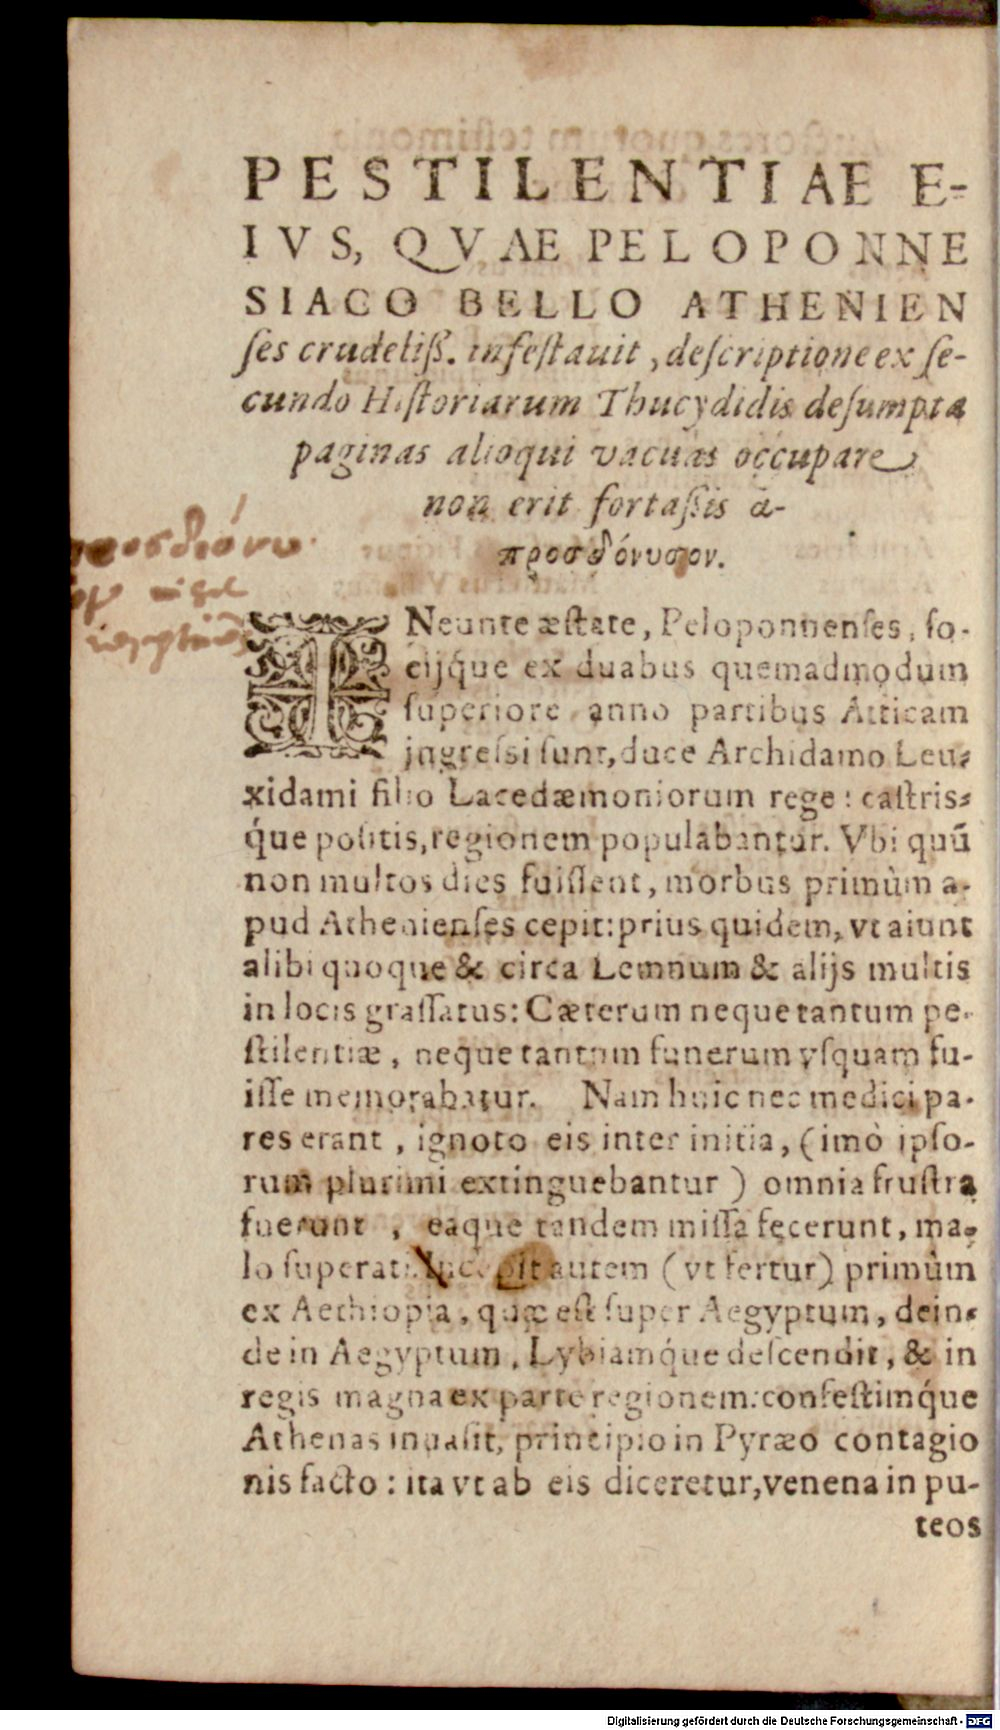 PESTILENTIAE E-
IVS, QVAE PELOPONNE
SIACO BELLO ATHENIEN
ſes crudeliß. infeſtauit, deſcriptione ex ſe-
cundo Hiſtoriarum Thucydidis deſumpta
paginas alioqui vacuas occupare
non erit fortaſsis ἀ-
προσδιόνυσον.
INeunte æſtate, Peloponnenſes, ſo-
cijq́ue ex duabus quemadmodum
ſuperiore anno partibus Atticam
ingreſsi ſunt, duce Archidamo Leu-
xidami filio Lacedæmoniorum rege: caſtris-
q́ue poſitis, regionem populabantur. Vbi quū
non multos dies fuiſſent, morbus primùm a-
pud Athenienſes cepit: prius quidem, vt aiunt
alibi quoque & circa Lemnum & alijs multis
in locis graſſatus: Cæterum neque tantum pe-
ſtilentiæ, neque tantum funerum vſquam fu-
iſſe memorabatur. Nam huic nec medici pa-
res erant, ignoto eis inter initia, (imò ipſo-
rum plurimi extinguebantur) omnia fruſtra
fuerunt, eaque tandem miſſa fecerunt, ma-
lo ſuperati. Incepit autem (vt fertur) primùm
ex Aethiopia, quæ eſt ſuper Aegyptum, dein-
de in Aegyptum, Lybiamq́ue deſcendit, & in
regis magna ex parte regionem: confeſtimq́ue
Athenas inuaſit, principio in Pyræo contagio
nis facto: ita vt ab eis diceretur, venena in pu-
teos
Digitalisierung gefördert durch die Deutsche Forschungsgemeinschaft - DFG